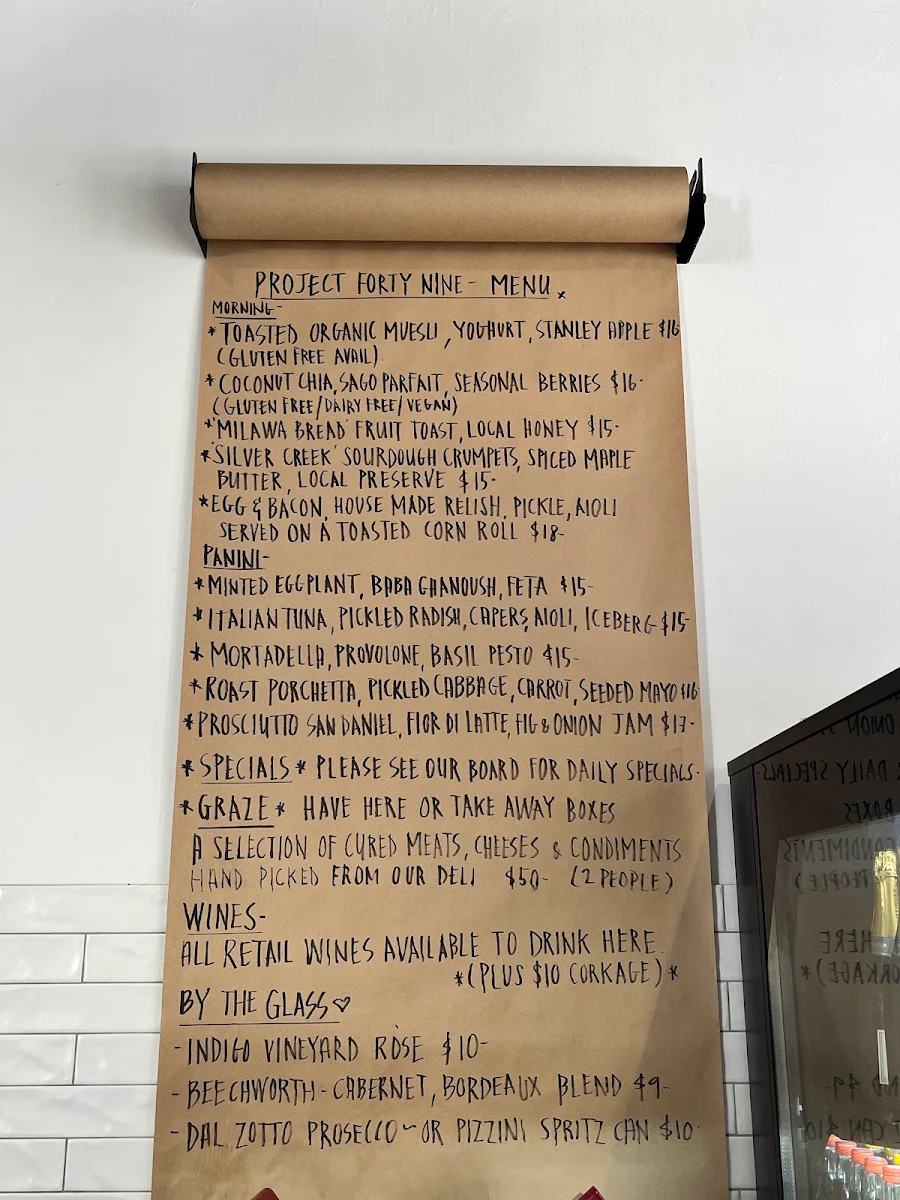 PROJECT FORTY NINE - MENU x
MORNING -
* TOASTED ORGANIC MUESLI, YOGHURT, STANLEY APPLE $16
(GLUTEN FREE AVAIL)
* COCONUT CHIA, SAGO PARFAIT, SEASONAL BERRIES $16-
(GLUTEN FREE/DAIRY FREE/VEGAN)
* 'MILAWA BREAD' FRUIT TOAST, LOCAL HONEY $15-
* 'SILVER CREEK' SOURDOUGH CRUMPETS, SPICED MAPLE
BUTTER, LOCAL PRESERVE $15-
* EGG & BACON, HOUSE MADE RELISH, PICKLE, AIOLI
SERVED ON A TOASTED CORN ROLL $18-
PANINI-
* MINTED EGGPLANT, BABA GHANOUSH, FETA $15-
* ITALIAN TUNA, PICKLED RADISH, CAPERS, AIOLI, ICEBERG $15-
* MORTADELLA, PROVOLONE, BASIL PESTO $15-
* ROAST PORCHETTA, PICKLED CABBAGE, CARROT, SEEDED MAYO $16-
* PROSCIUTTO SAN DANIEL, FIOR DI LATTE, FIG & ONION JAM $17-
* SPECIALS * PLEASE SEE OUR BOARD FOR DAILY SPECIALS-
* GRAZE * HAVE HERE OR TAKE AWAY BOXES
A SELECTION OF CURED MEATS, CHEESES & CONDIMENTS
HAND PICKED FROM OUR DELI $50- (2 PEOPLE)
WINES-
ALL RETAIL WINES AVAILABLE TO DRINK HERE
*(PLUS $10 CORKAGE)*
BY THE GLASS ♡
- INDIGO VINEYARD ROSE $10-
- BEECHWORTH - CABERNET, BORDEAUX BLEND $9-
- DAL ZOTTO PROSECCO ~ OR PIZZINI SPRITZ CAN $10-